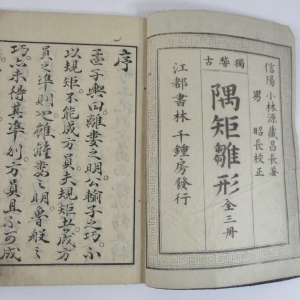 獨學古
信陽 小林源藏昌長著
男 昭長校正
隅矩雛形 全三冊
江都書林 千鍾房發行
序
孟子輿曰離婁之明公輸子之巧不
以規矩不能成方員夫規矩者成方
員之準則也雖離婁之明魯般之
巧亦未得其準則方員且不可成